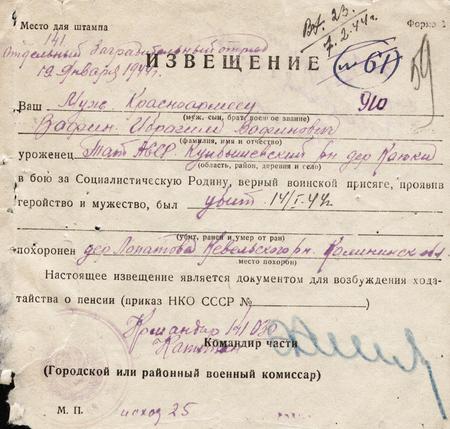 Место для штампа
Форма
Вх. 23.
7.2.44г.
141
Отдельный Заградительный отряд
19 Января 1944г.
ИЗВЕЩЕНИЕ
61
59
910
Ваш Муж Красноармеец
(муж, сын, брат, военное звание)
Ибрагим
(фамилия, имя и отчество)
уроженец Тат АССР Куйбышевский рн дер
(область, район, деревня и село)
в бою за Социалистическую Родину, верный воинской присяге, проявив
геройство и мужество, был убит 14/I-44г
(убит, ранен и умер от ран)
похоронен дер Лопатово Невельского рн. Калининск обл.
(место похорон)
Настоящее извещение является документом для возбуждения хода-
тайства о пенсии (приказ НКО СССР №
Командир 141 ОЗО
Капитан
Командир части
(Городской или районный военный комиссар)
М. П.
исход 25